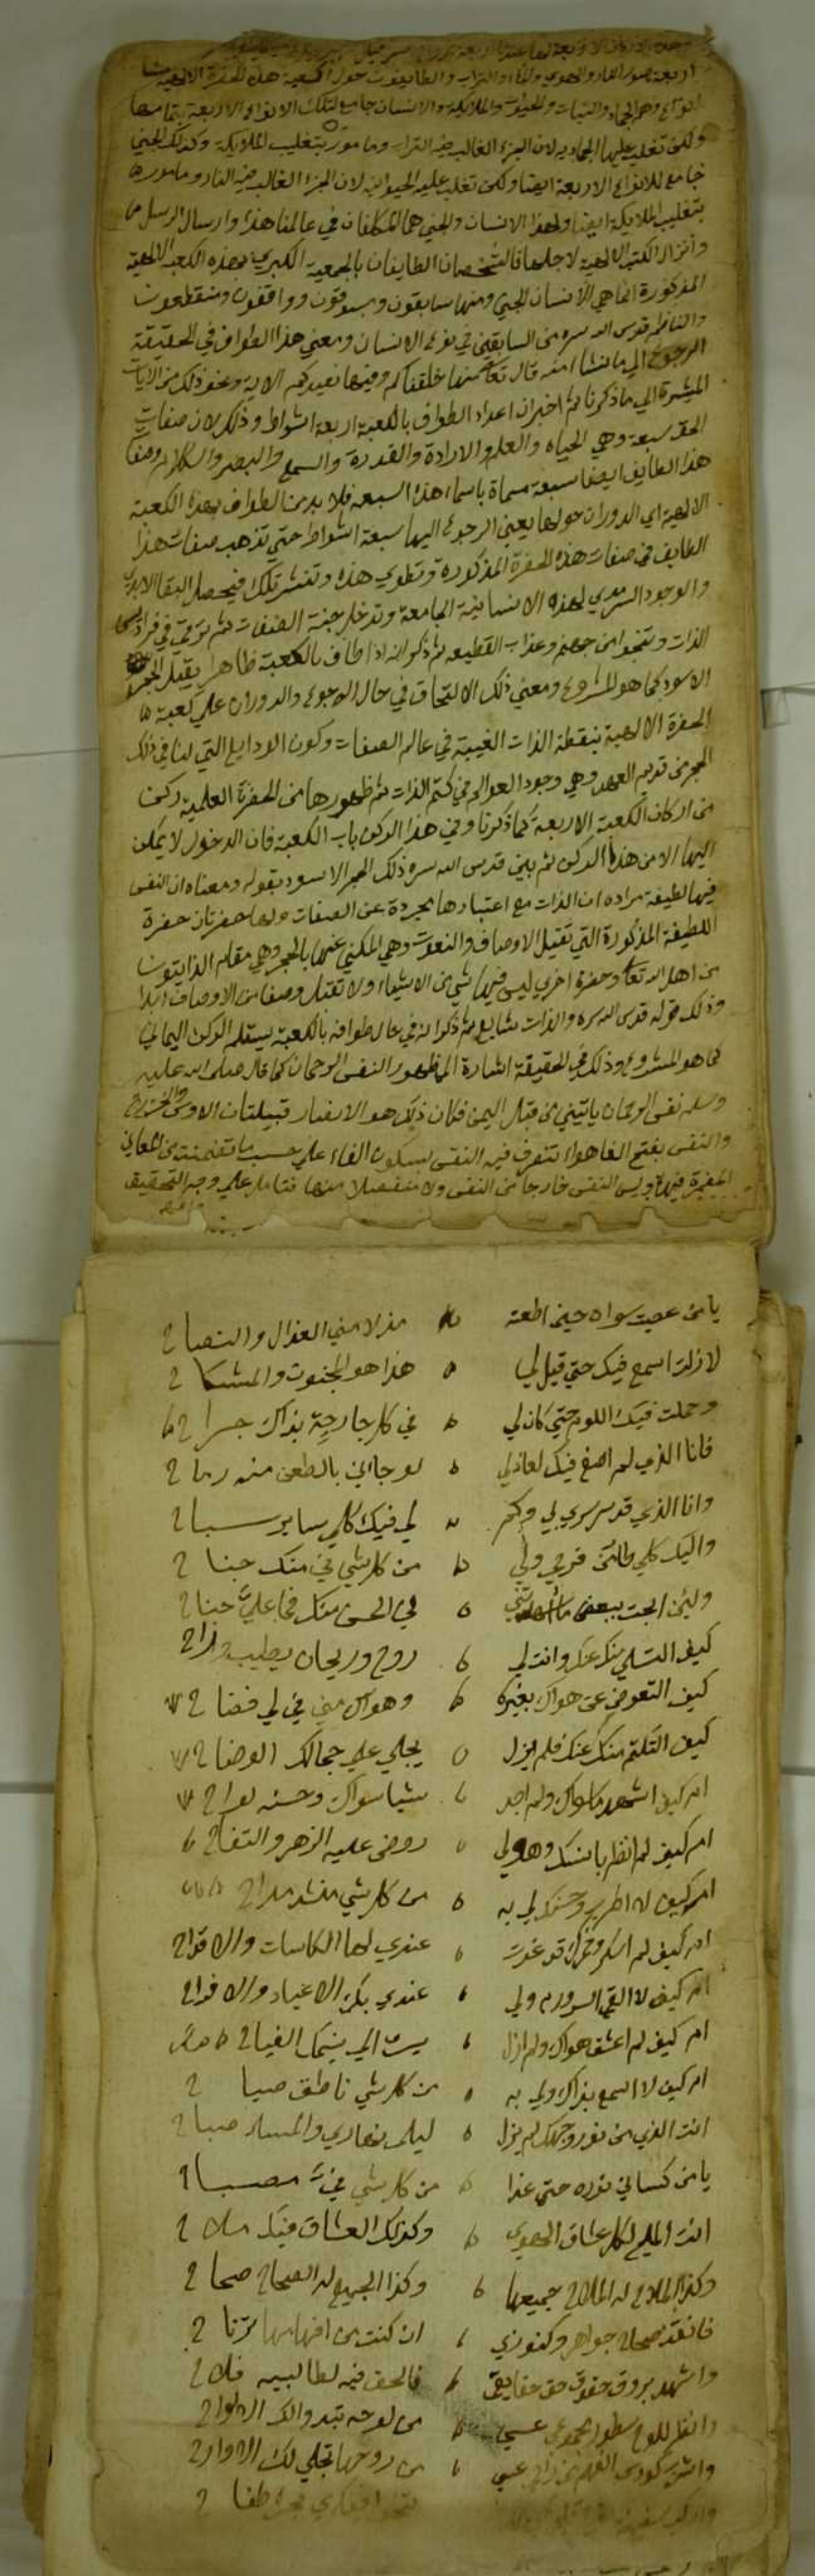 اربعة صور النار والهوى والماء والتراب والطايفون حول الكعبة هذه الحضرة الالهية
انواع وهم الجماد والنبات والحيوان والملايكة والانسان جامع لتلك الانواع الاربعة بتمامها
ولكن تغلب عليها الجمادية لان الجزء الغالب فيه التراب ومامور بتغليب الملايكة وكذلك الجني
جامع للانواع الاربعة ايضا ولكن تغلب عليه الحيوانية لان الجزء الغالب فيه النار ومامور
بتغليب الملايكة ايضا ولهذا الانسان والجني هما المكلفان في عالمنا هذا وارسال الرسل
وانزال الكتب الالهية لاجلهما فالشخصان الطايفان بالجمعية الكبرى بهذه الكعبة الالهية
المذكورة انما هي الانسان والجني ومنهما سابقون ومسبوقون وواقفون ومنقطعون
والناظم قدس الله سره من السابقين في نوع الانسان ومعنى هذا الطواف في الحقيقة
الرجوع الى ما نشا منه قال تعالى منها خلقناكم وفيها نعيدكم الاية ونحو ذلك من الايات
المشيرة الى ما ذكرنا ثم اخبر ان اعداد الطواف بالكعبة اربعة اشواط وذلك لان صفات
الحق سبعة وهي الحياه والعلم والارادة والقدرة والسمع والبصر والكلام وصفات
هذا الطايف ايضا سبعة مسماة باسماء هذه السبعة فلا بد من الطواف بهذه الكعبة
الالهية اي الدوران حولها يعني الرجوع اليها سبعة اشواط حتى تذهب صفات هذا
الطايف في صفات هذه الحضرة المذكورة وتطوي هذه وتنتشر تلك فيحصل البقا الابدي
والوجود السرمدي لهذه الانسانية الجامعة وتدخل جنة الصفات ثم ترقي في فراديس
الذات وتنجو من جهنم وعذاب القطيعه ثم ذكر انه اذا طاف بالكعبة ظاهرا يقبل الحجر
الاسود كما هو المشروع ومعنى ذلك الالتحاق في حال الرجوع والدوران على كعبة
الحضرة الالهية بنقطة الذات الغيبية في عالم الصفات وكون الودايع التي لنا في ذلك
الحجر من قديم العهد وهي وجود العوالم في كتم الذات ثم ظهورها من الحضرة العلمية ركن
من اركان الكعبة الاربعة كما ذكرنا وفي هذا الركن باب الكعبة فان الدخول لا يمكن
اليها الا من هذا الركن ثم بين قدس الله سره ذلك الحجر الاسود بقوله ومعناه ان النفس
فيها لطيفة مراده ان الذات مع اعتبارها مجردة عن الصفات ولها حضرتان حضرة
اللطيفة المذكورة التي تقبل الاوصاف والنعوت وهي المكنى عنها بالحجر وهي مقام الذاتيون
من اهل الله تعالى وحضرة اخرى ليس فيها شي من الاشياء ولا تقبل وصفا من الاوصاف ابدا
وذلك قوله قدس الله سره والذات ثم ذكر انه في حال طوافه بالكعبة يستلم الركن اليماني
كما هو المشروع وذلك في الحقيقة اشارة الى ظهور النفس الرحمان كما قال صلى الله عليه
وسلم نفس الرحمان ياتيني من قبل اليمن فكان ذلك هو الانصار قبيلتان الاوس والخزرج
والنفس بفتح الفا هواء تتصرف فيه النفس بسكون الفاء على حسب ما تضمنته من المعاني
المضمرة فيها وليس النفس خارجا عن النفس ولا منفصلا منها فتامل على وجه التحقيق
يا من عصيت سواه حين اطعته مذ لامني العذال والنصاح
لا زلت اسمع فيك حتى قيل لي هذا هو المجنون والمشكاح
وحملت فيك اللوم حتى كان لي في كل جارحة بذاك جراح
فانا الذي لم اصغ فيك لعاذلي لو جاني بالطعن منه رماح
وانا الذي قد سرسري بي وكم لي فيك كلي ساير سباح
واليك كلي طائر فرحي ولي من كل شي في منك جناح
ولئن ابحت ببعض ما لي الحسن منك فما علي جناح
كيف التسلي منك عنك وانت لي روح وريحان يطيب وراح
كيف التعوض عن هواك بغيره وهواك مني في لي فضاح
كيف التكتم منك عنك فلم يزل يجلى علي جمالك الوضاح
ام كيف اشهد ما سواك ولم اجد شيا سواك وحسنه لواح
ام كيف لم انظر بانسك وهو لي روض عليه الزهر والتفاح
ام كيف لا اطرب وحسنك لي به من كل شي منشد مداح
ام كيف لم اسكر وخمرك قد غدت عندي لها الكاسات والاقداح
ام كيف لا القى السرور ولي عندي بك الاعياد والافراح
ام كيف لم اعشق هواك ولم ازل
ام كيف لا اسمع بذاك ولي به من كل شي ناطق صياح
انت الذي من نور وجهك لم يزل ليلي نهاري والمساء صباح
يا من كساني نوره حتى غدا من كل شي في مصباح
انت المليح لكل عشاق الهوى وكذلك العشاق فيك ملاح
وكذا الملاح له الملاح جميعها وكذا الجميع له الصحاح صحاح
فانقد صحاح جواهر وكنوزي ان كنت من افهامها ترتاح
واشهد بروق حقوق حق حقايقي فالحق فيه لطالبيه فلاح
وانظر للوح سطور مجموعي عسى من لوحه تبدو لك الالواح
واشرب كووس الفهم من راحي عسى من روحها تجلي لك الارواح